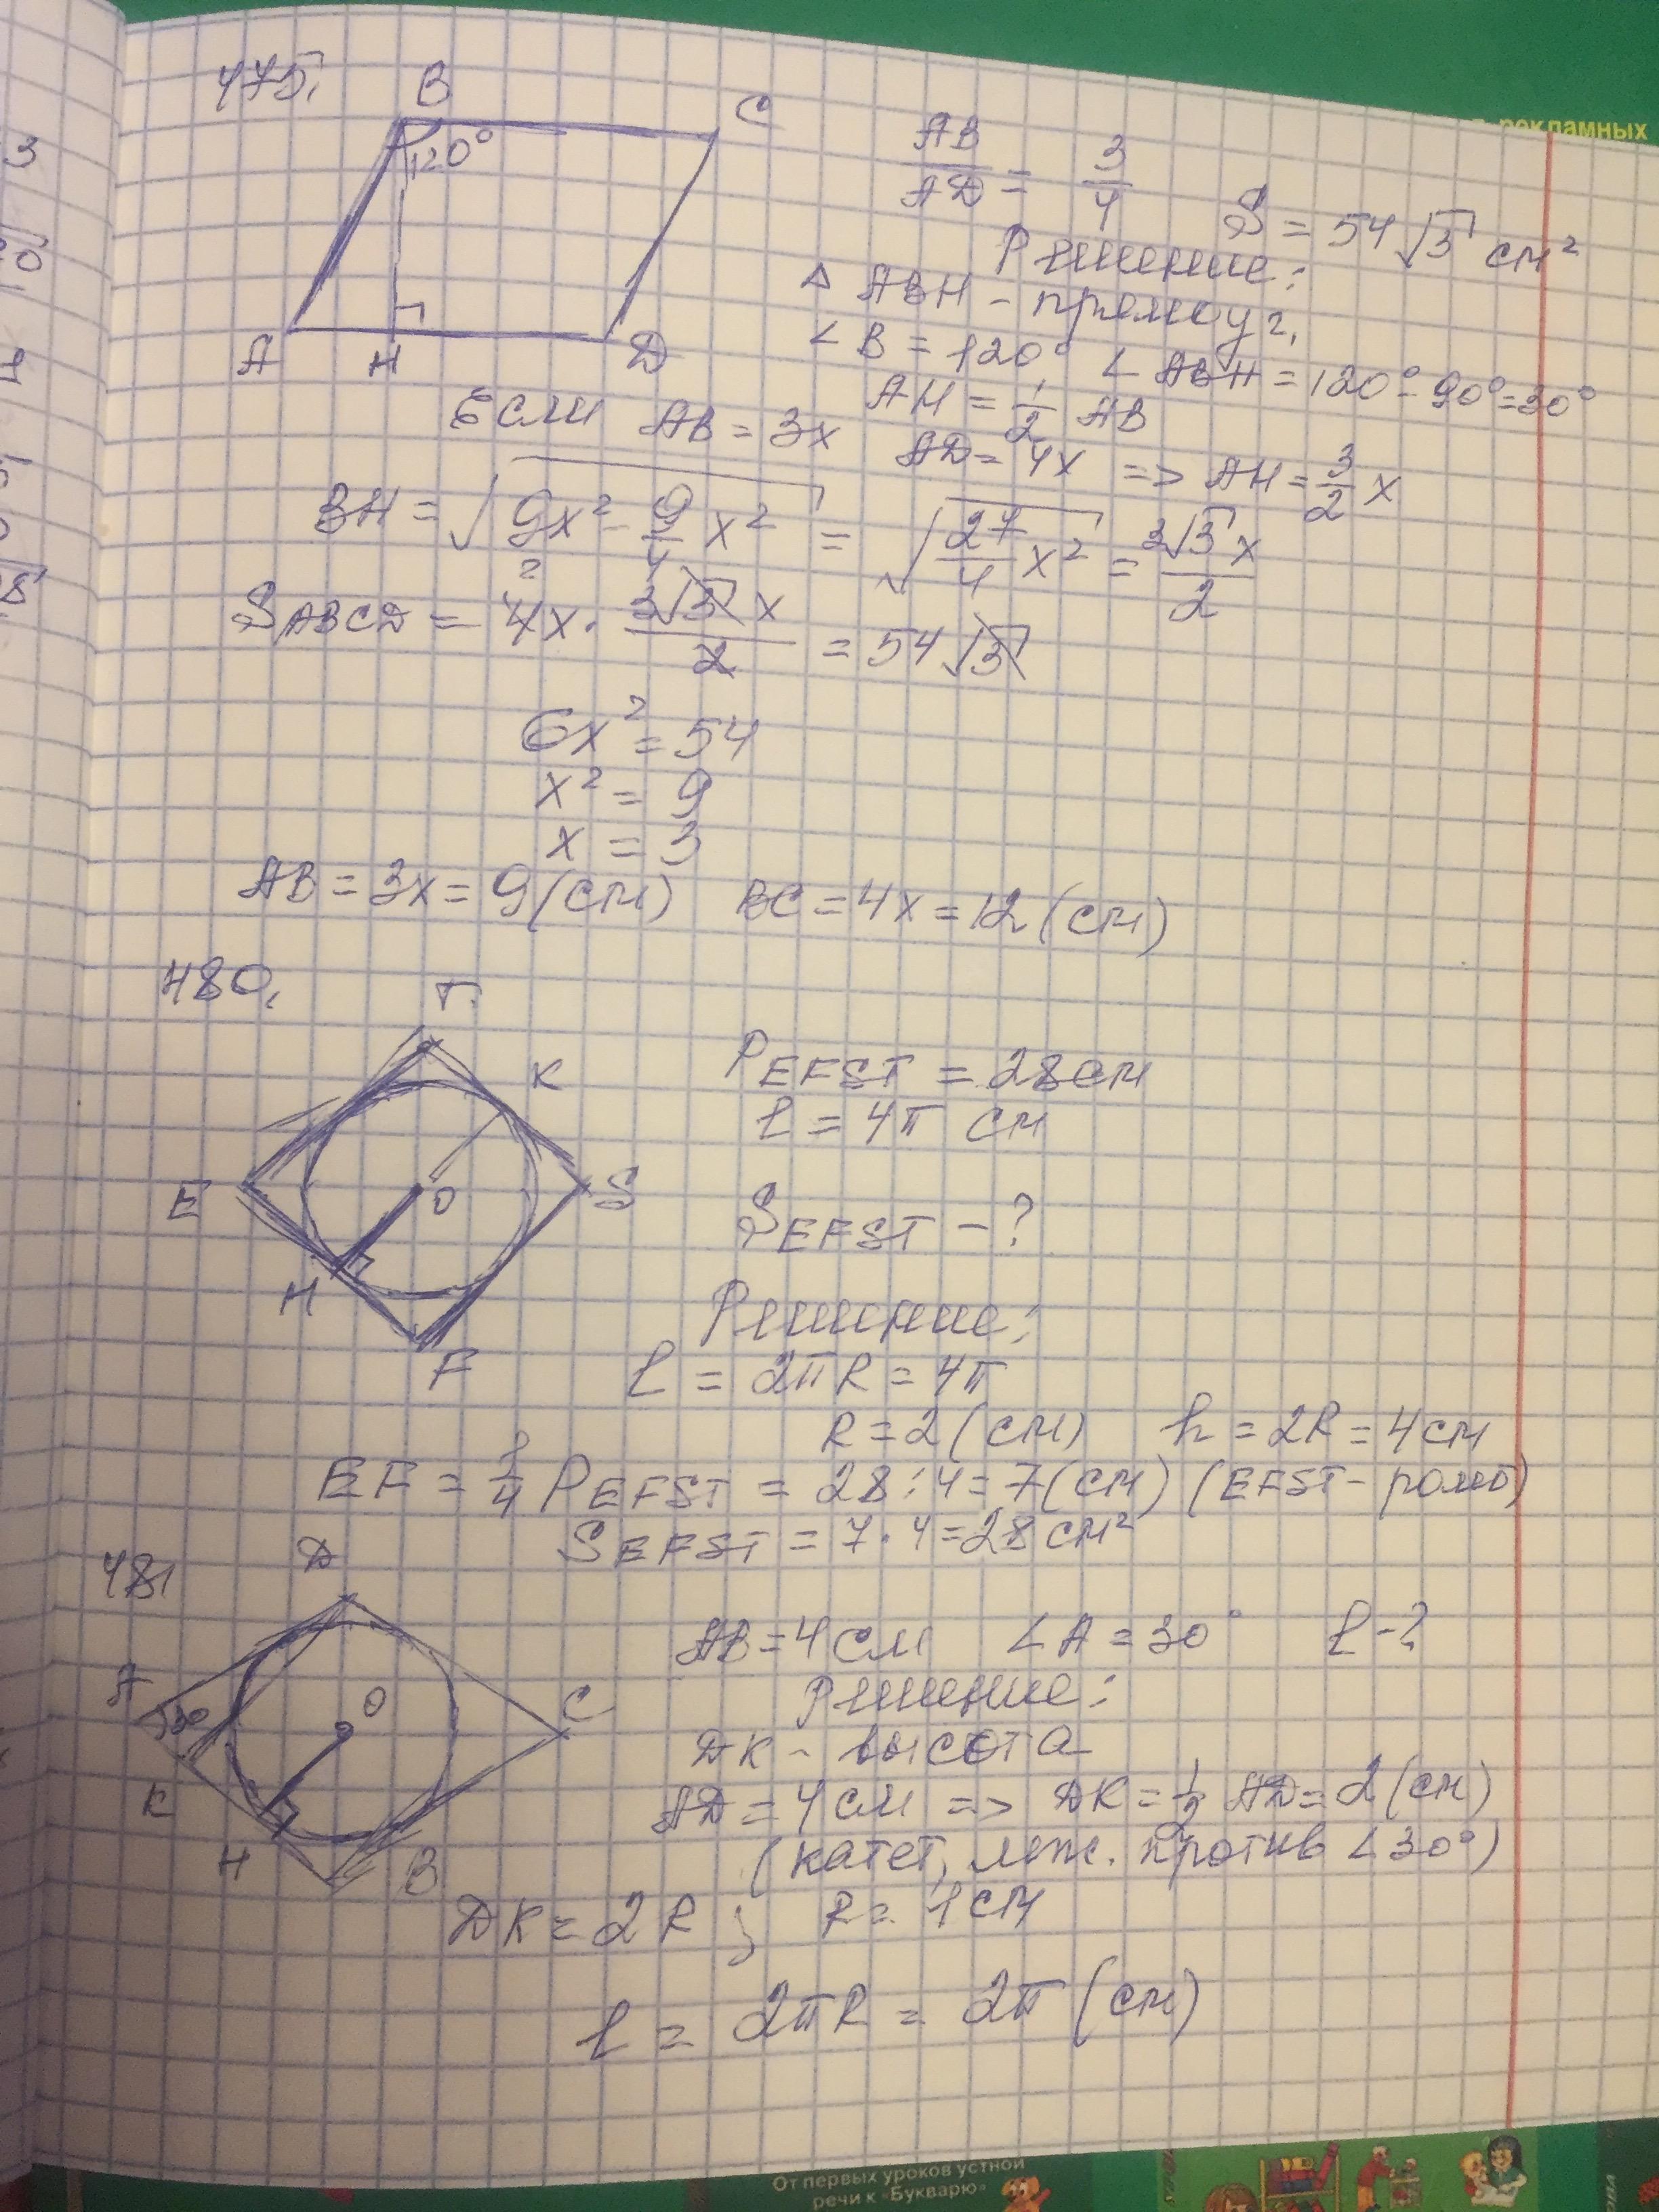 475.
B
C
120°
A
H
D
AB/AD = 3/4
S = 54√3 см²
Решение:
△ ABH - прямоуг.
∠B = 120° ∠ABH = 120° - 90° = 30°
AH = 1/2 AB
Если AB = 3x AD = 4x => AH = 3/2 x
BH = √(9x² - 9/4 x²) = √(27/4 x²) = 3√3x/2
S ABCD = 4x · 3√3x/2 = 54√3
2
6x² = 54
x² = 9
x = 3
AB = 3x = 9(см) BC = 4x = 12(см)
480.
T
K
E
O
S
H
F
P EFST = 28см
l = 4π см
S EFST - ?
Решение:
l = 2πR = 4π
R = 2(см) h = 2R = 4см
EF = 1/4 P EFST = 28:4 = 7(см) (EFST - ромб)
S EFST = 7·4 = 28см²
481
D
A
30
O
C
K
H
B
AB = 4см ∠A = 30° l - ?
Решение:
DK - высота
AD = 4см => DK = 1/2 AD = 2(см)
(катет, леж. против ∠30°)
DK = 2R; R = 1см
l = 2πR = 2π(см)
рекламных
От первых уроков устной
речи к «Букварю»